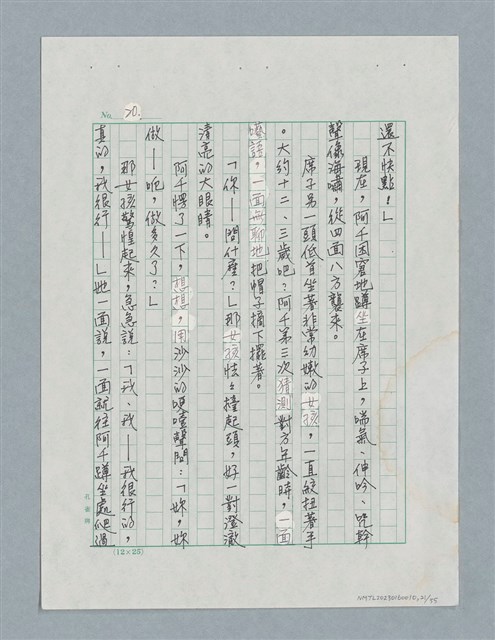 No. 20.
還不快點!」
現在,阿千困窘地蹲坐在席子上,喘氣、伸吟、咒幹
聲像海嘯,從四面八方襲來。
席子另一頭低首坐著非常幼嫩的女孩,一直絞扭著手
。大約十二、三歲吧?阿千第三次猜測對方年齡時,一面
囈語,一面無聊地把帽子摘下擺著。
「你——問什麼?」那女孩怯怯擡起頭,好一對澄澈
清亮的大眼睛。
阿千愕了一下,想想,用沙沙的哽噎聲問:「妳,妳
做——呃,做多久了?」
那女孩驚惶起來,急急說:「我、我——我很行的,
真的,我很行——」她一面說,一面就往阿千蹲坐處爬過
(12×25)
NMTL20230160010, 21/55